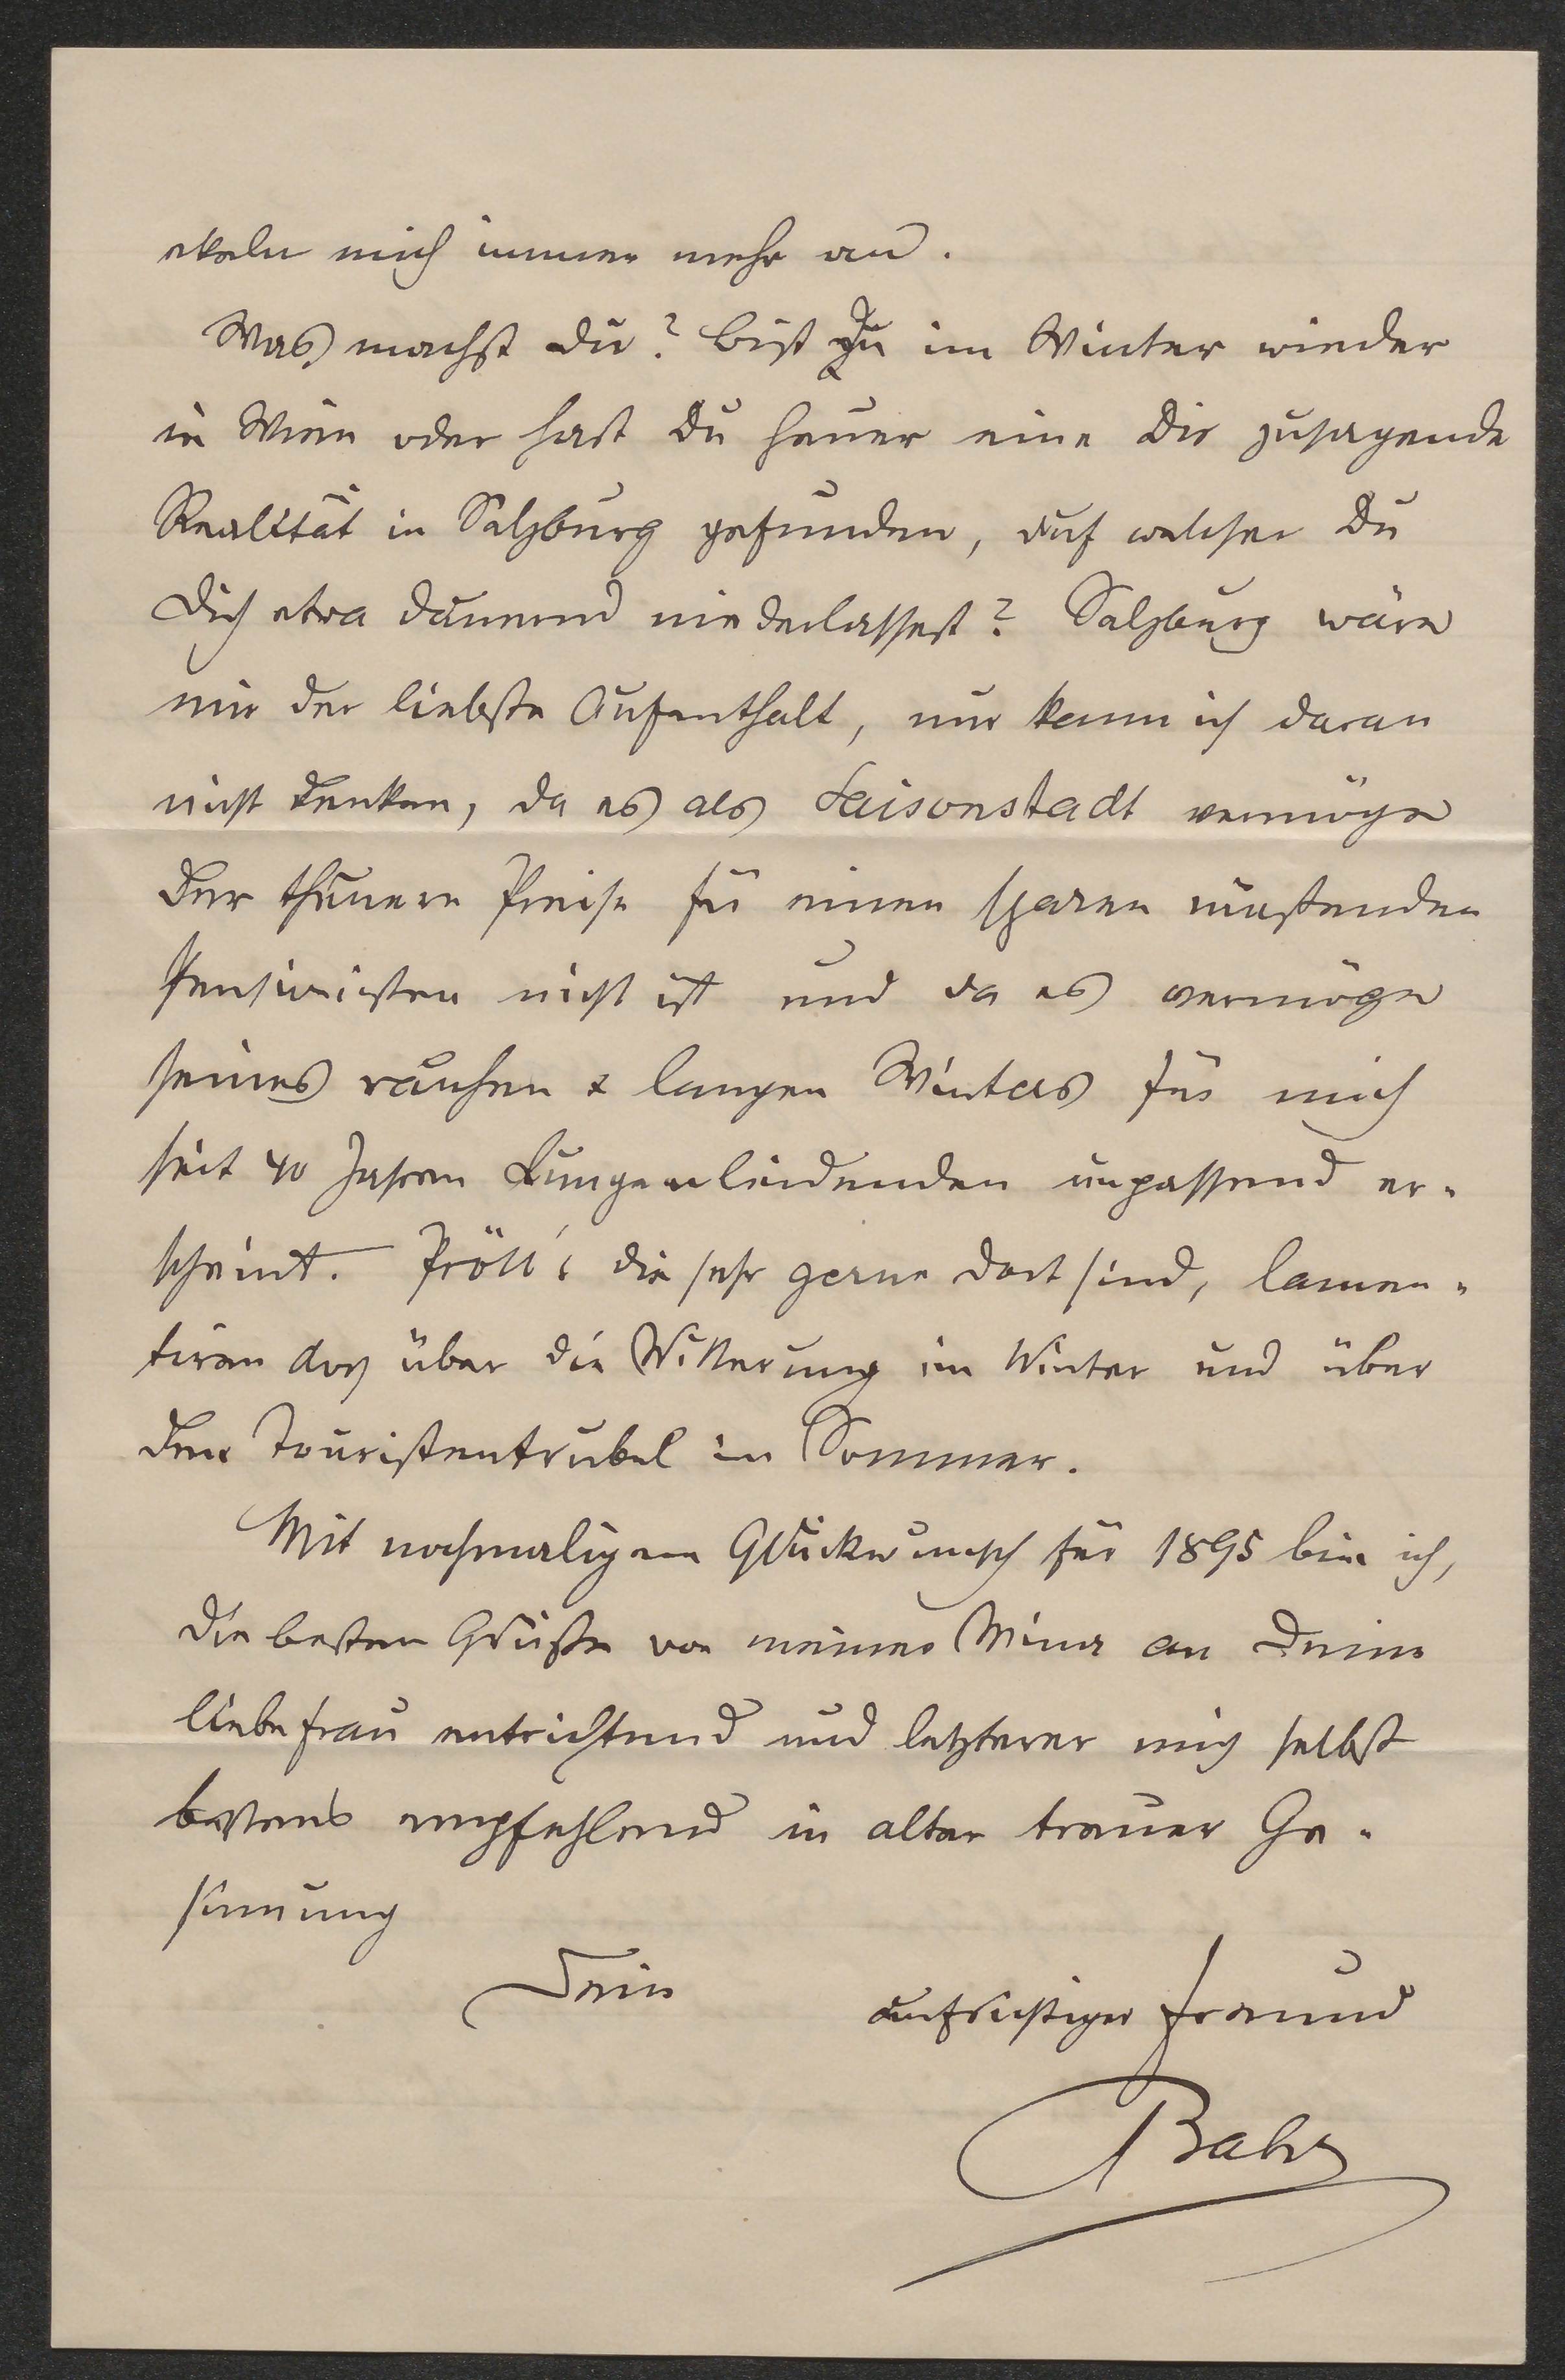 ekeln mich immer mehr an.
Was machst Du? bist Du im Winter wieder
in Wien oder hast Du heuer eine Dir zusagende
Realität in Salzburg gefunden, auf welcher Du
Dich etwa dauernd niederlassest? Salzburg wäre
mir der liebste Aufenthalt, nur kann ich daran
nicht denken, da es als Saisonstadt vermöge
der theuern Preise für einen sparen müssenden
Pensionisten nicht ist und da es vermöge
seines rauhen & langen Winters für mich
seit 40 Jahren Lungenleidenden unpassend er-
scheint. Pröll's die sehr gerne dort sind, lamen-
tiren doch über die Witterung im Winter und über
den Touristentrubel im Sommer.
Mit nochmaligem Glückwunsch für 1895 bin ich,
die besten Grüße von meiner Mina an Deine
liebe Frau entrichtend und letzterer mich selbst
bestens empfehlend in alter treuer Ge-
sinnung
Dein aufrichtiger Freund
Bahr